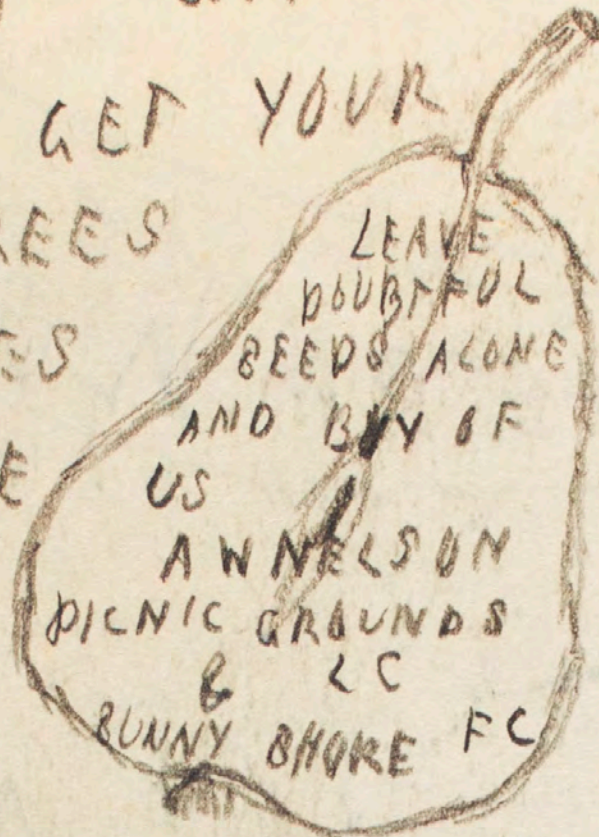 GET YOUR
REES
ES
E
LEAVE
DOUBTFUL
SEEDS ALONE
AND BUY OF
US
A W NELSON
PICNIC GROUNDS
& L C
SUNNY SHORE F C